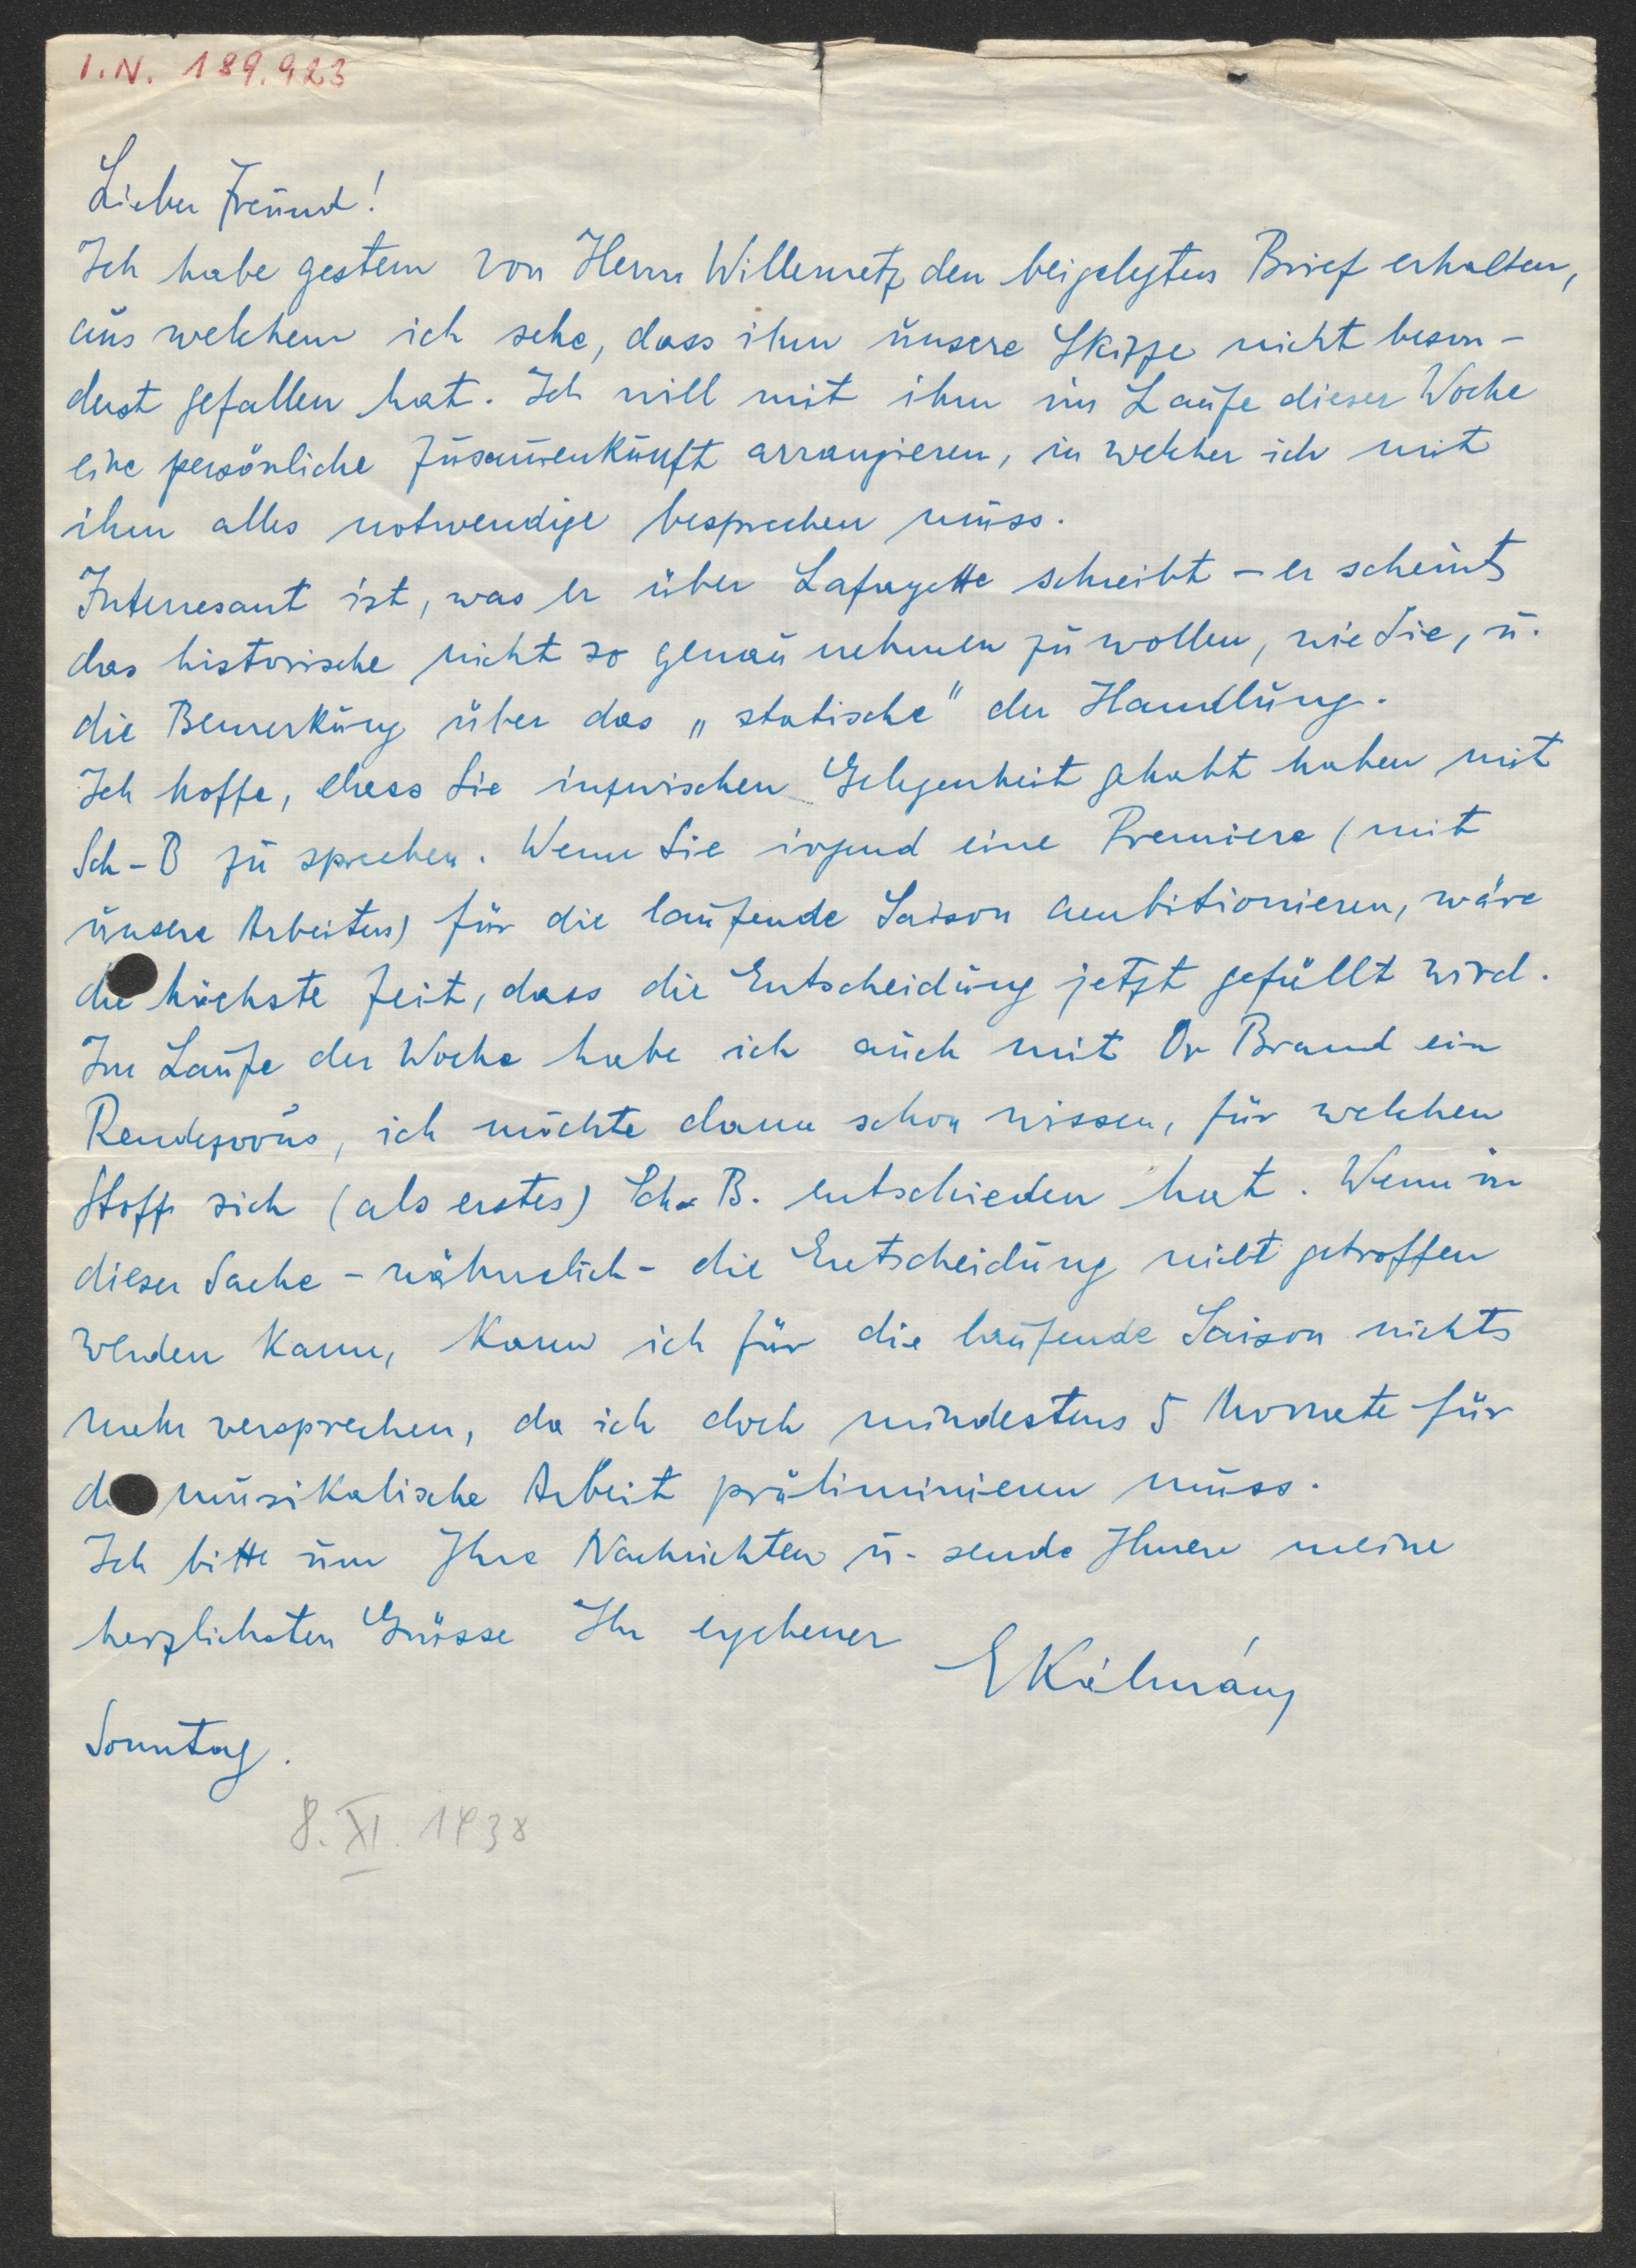 I.N. 189.923
Lieber Freund!
Ich habe gestern von Herrn Willemetz den beigelegten Brief erhalten,
aus welchem ich sehe, dass ihm unsere Skizze nicht beson-
derst gefallen hat. Ich will mit ihm im Laufe dieser Woche
eine persönliche Zusammenkunft arrangieren, in welcher ich mit
ihm alles notwendige besprechen muss.
Interresant ist, was er über Lafayette schreibt – er scheint
das historische nicht so genau nehmen zu wollen, wie Sie, u.
die Bemerkung über das „statische" der Handlung.
Ich hoffe, dass Sie inzwischen Gelegenheit gehabt haben mit
Sch-B zu sprechen. Wenn Sie irgend eine Premiere (mit
unsere Arbeiten) für die laufende Saison ambitionieren, wäre
die höchste Zeit, dass die Entscheidung jetzt gefällt wird.
Im Laufe der Woche habe ich auch mit Dr Brand ein
Rendezvous, ich möchte dann schon wissen, für welchen
Stoff sich (als erstes) Sch-B. entschieden hat. Wenn in
dieser Sache – nähmlich – die Entscheidung nicht getroffen
werden kann, kann ich für die laufende Saison nichts
mehr versprechen, da ich doch mindestens 5 Monate für
d musikalische Arbeit präliminieren muss.
Ich bitte um Ihre Nachrichten u. sende Ihnen meine
herzlichsten Grüsse Ihr ergebener
EKálmán
Sonntag.
8. XI. 1938